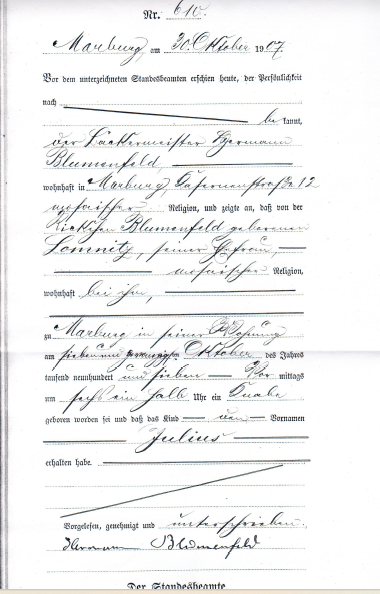 Nr. 610.
Marburg, am 30. Oktober 1907.
Vor dem unterzeichneten Standesbeamten erschien heute, der Persönlichkeit
nach
be kannt,
der Bäckermeister Hermann
Blumenfeld,
wohnhaft in Marburg, 12
mosaischer Religion, und zeigte an, daß von der
Blumenfeld geborenen
Lomnitz, seiner Ehefrau,
mosaischer Religion,
wohnhaft bei ihm,
zu Marburg in seiner Wohnung
am siebenundzwanzigsten Oktober des Jahres
tausend neunhundert und sieben Vor mittags
um sechs ein halb Uhr ein Knabe
geboren worden sei und daß das Kind den Vornamen
Julius
erhalten habe.
Vorgelesen, genehmigt und unterschrieben.
Hermann Blumenfeld
Der Standesbeamte